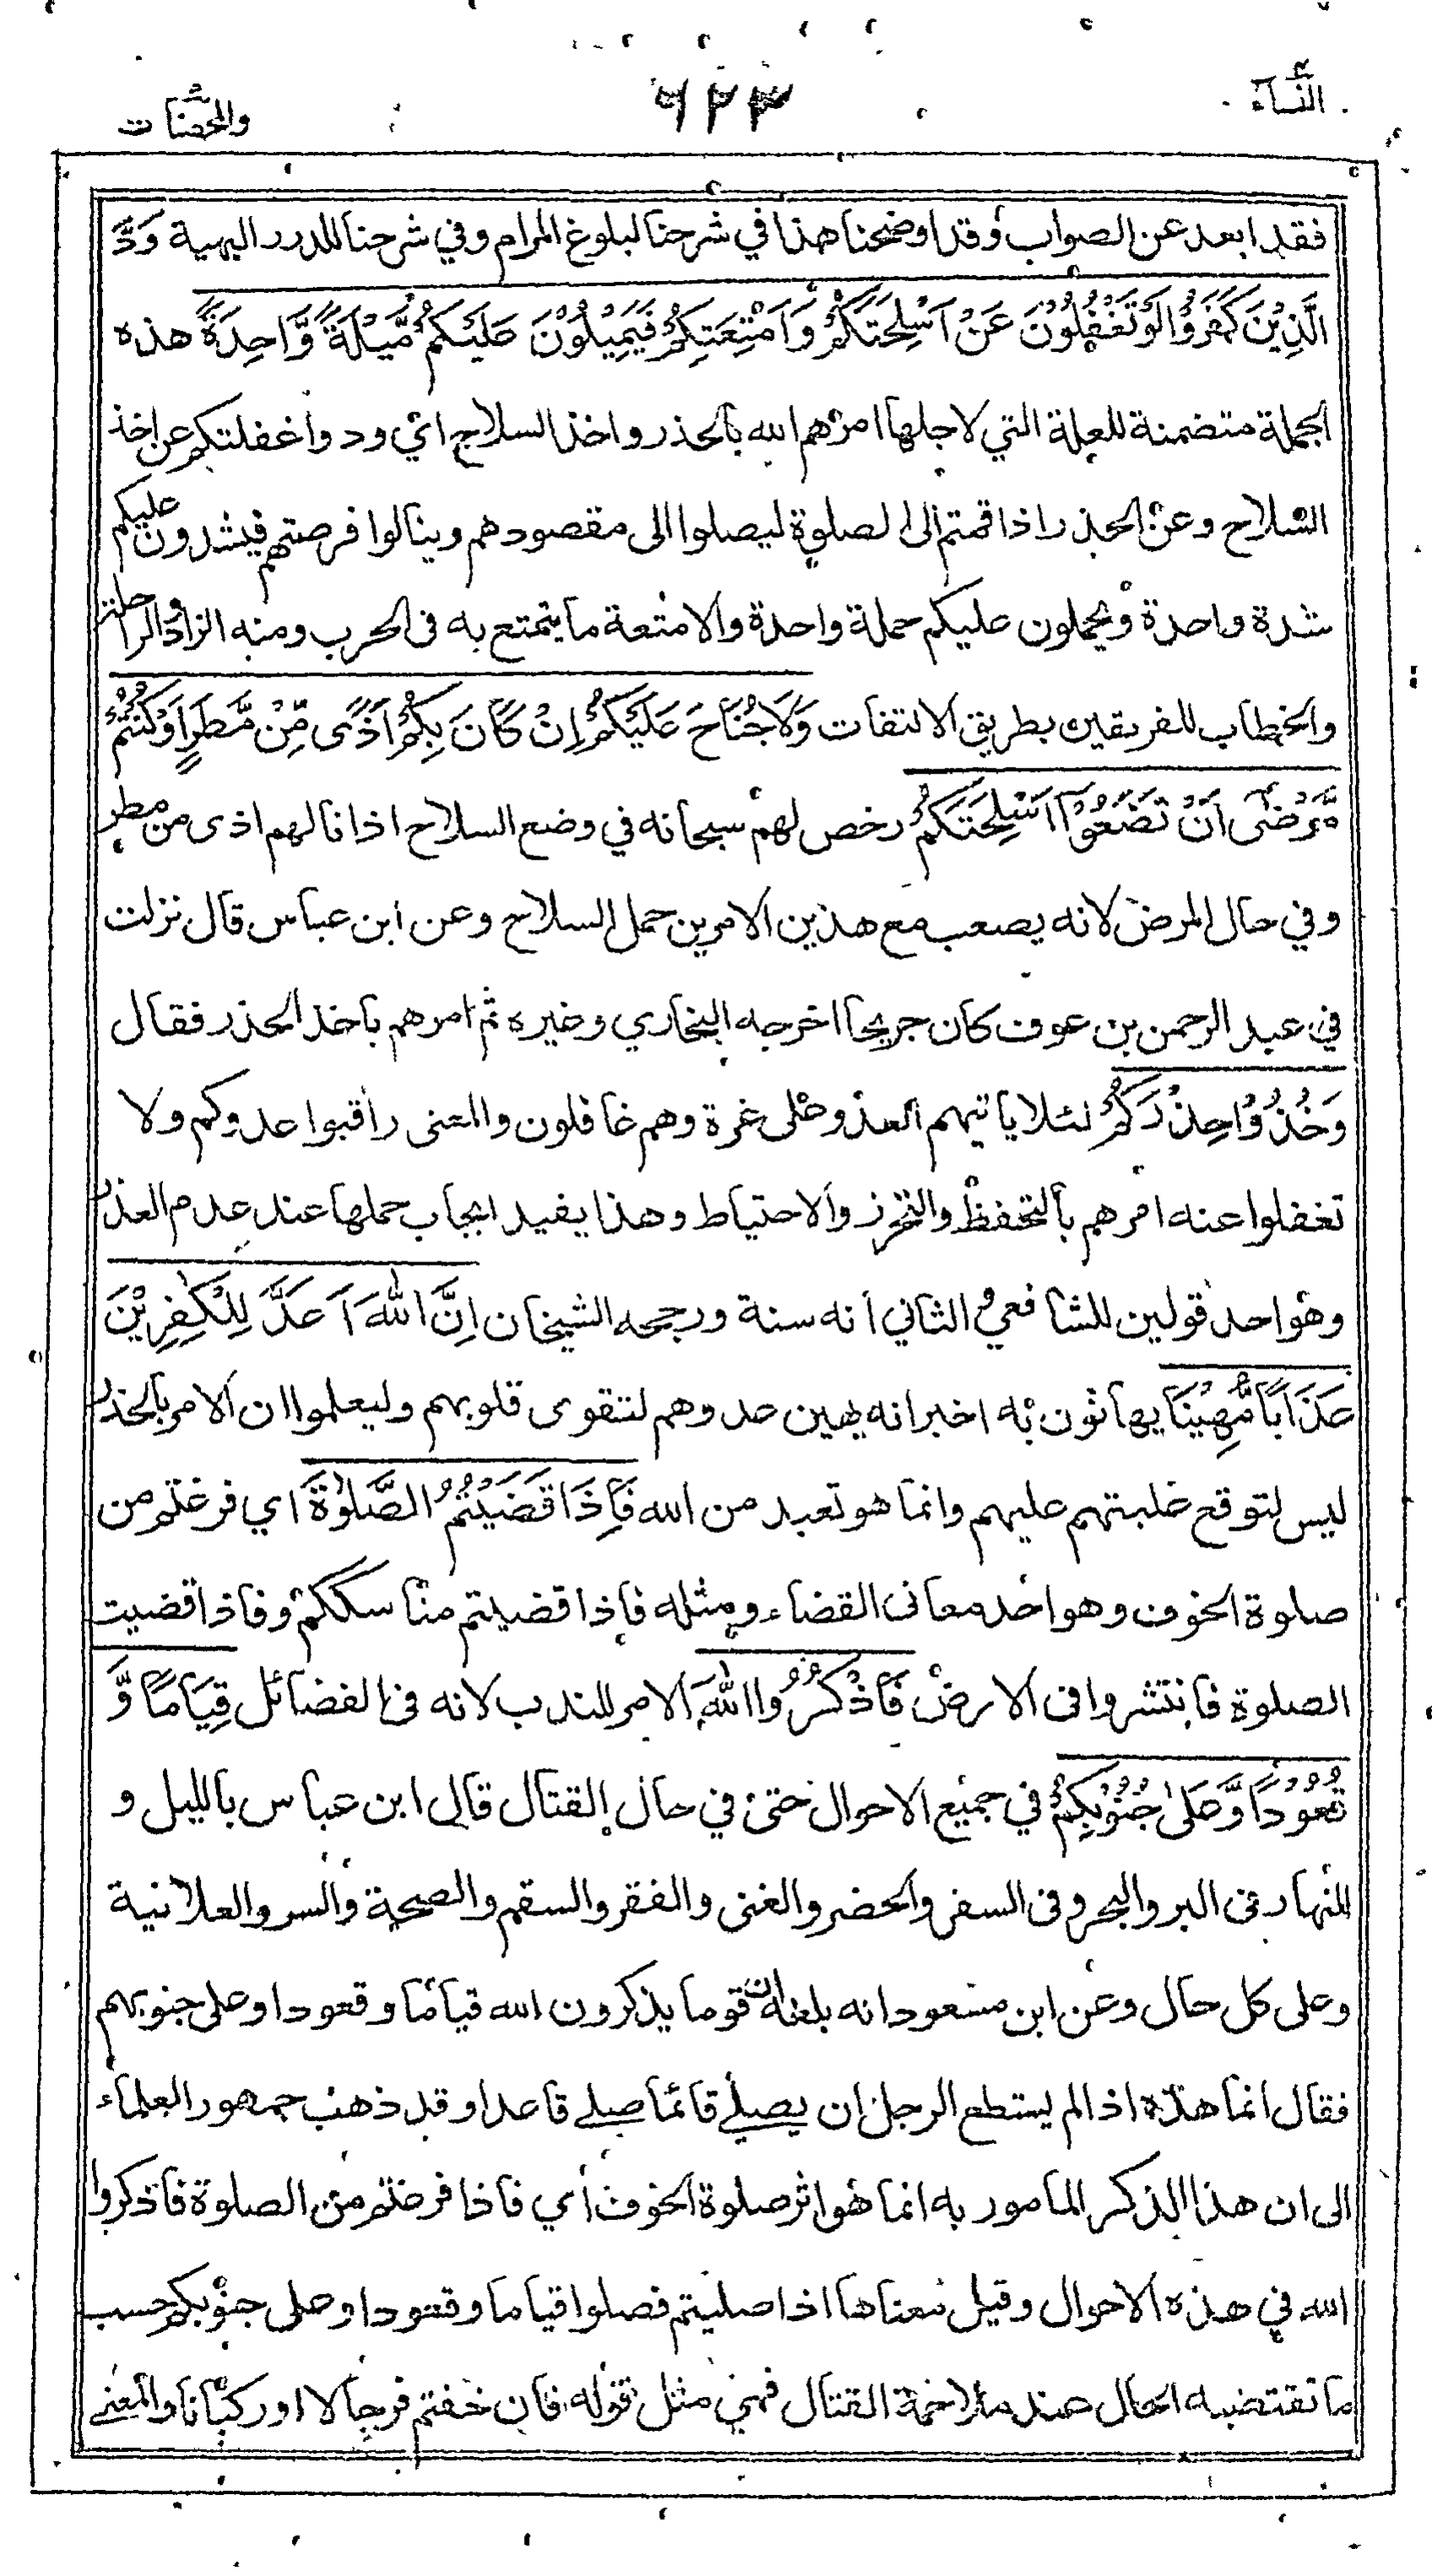 النسآء
٦٢٣
والمحصنات
فقد ابعد عن الصواب وقد اوضحنا هذا في شرحنا لبلوغ المرام وفي شرحنا للدرر البهية وَدَّ
الَّذِيْنَ كَفَرُوْا لَوْ تَغْفُلُوْنَ عَنْ اَسْلِحَتِكُمْ وَاَمْتِعَتِكُمْ فَيَمِيْلُوْنَ عَلَيْكُمْ مَّيْلَةً وَّاحِدَةً هذه
الجملة متضمنة للعلة التي لاجلها امرهم الله بالحذر واخذ السلاح اي ودوا غفلتكم عن اخذ
السلاح وعن الحذر اذا قمتم الى الصلوة ليصلوا الى مقصودهم وينالوا فرصتهم فيشدون عليكم
شدة واحدة ويحملون عليكم حملة واحدة والامتعة ما يتمتع به فى الحرب ومنه الزاد والراحلة
والخطاب للفريقين بطريق الالتفات وَلَا جُنَاحَ عَلَيْكُمْ اِنْ كَانَ بِكُمْ اَذًى مِّنْ مَّطَرٍ اَوْ كُنْتُمْ
مَّرْضٰى اَنْ تَضَعُوْٓا اَسْلِحَتَكُمْ رخص لهم سبحانه في وضع السلاح اذا نالهم اذى من مطر
وفي حال المرض لانه يصعب مع هذين الامرين حمل السلاح وعن ابن عباس قال نزلت
في عبد الرحمن بن عوف كان جريحا اخرجه البخاري وغيره ثم امرهم باخذ الحذر فقال
وَخُذُوْا حِذْرَكُمْ لئلا ياتيهم العدو على غرة وهم غافلون والمعنى راقبوا عدوكم ولا
تغفلوا عنه امرهم بالتحفظ والتحرز والاحتياط وهذا يفيد ايجاب حملها عند عدم العذر
وهو احد قولين للشافعي والثاني انه سنة ورجحه الشيخان اِنَّ اللّٰهَ اَعَدَّ لِلْكٰفِرِيْنَ
عَذَابًا مُّهِيْنًا يهانون به اخبر انه يهين عدوهم لتقوى قلوبهم وليعلموا ان الامر بالحذر
ليس لتوقع غلبتهم عليهم وانما هو تعبد من الله فَاِذَا قَضَيْتُمُ الصَّلٰوةَ اي فرغتم من
صلوة الخوف وهو احد معانى القضاء ومثله فاذا قضيتم مناسككم وفاذا قضيت
الصلوة فانتشروا فى الارض فَاذْكُرُوا اللّٰهَ الامر للندب لانه فى الفضائل قِيَامًا وَّ
قُعُوْدًا وَّعَلٰى جُنُوْبِكُمْ في جميع الاحوال حتى في حال القتال قال ابن عباس بالليل و
النهار فى البر والبحر وفى السفر والحضر والغنى والفقر والسقم والصحة والسر والعلانية
وعلى كل حال وعن ابن مسعود انه بلغه ان قوما يذكرون الله قياما وقعودا وعلى جنوبهم
فقال انما هذه اذا لم يستطع الرجل ان يصلي قائما صلے قاعدا وقد ذهب جمهور العلماء
الى ان هذا الذكر المامور به انما هو اثر صلوة الخوف اي فاذا فرغتم من الصلوة فاذكروا
الله في هذه الاحوال وقيل معناها اذا صليتم فصلوا قياما وقعودا وعلى جنوبكم حسب
ما تقتضيه الحال عند ملاحمة القتال فهي مثل قوله فان خفتم فرجالا او ركبانا والمعنے